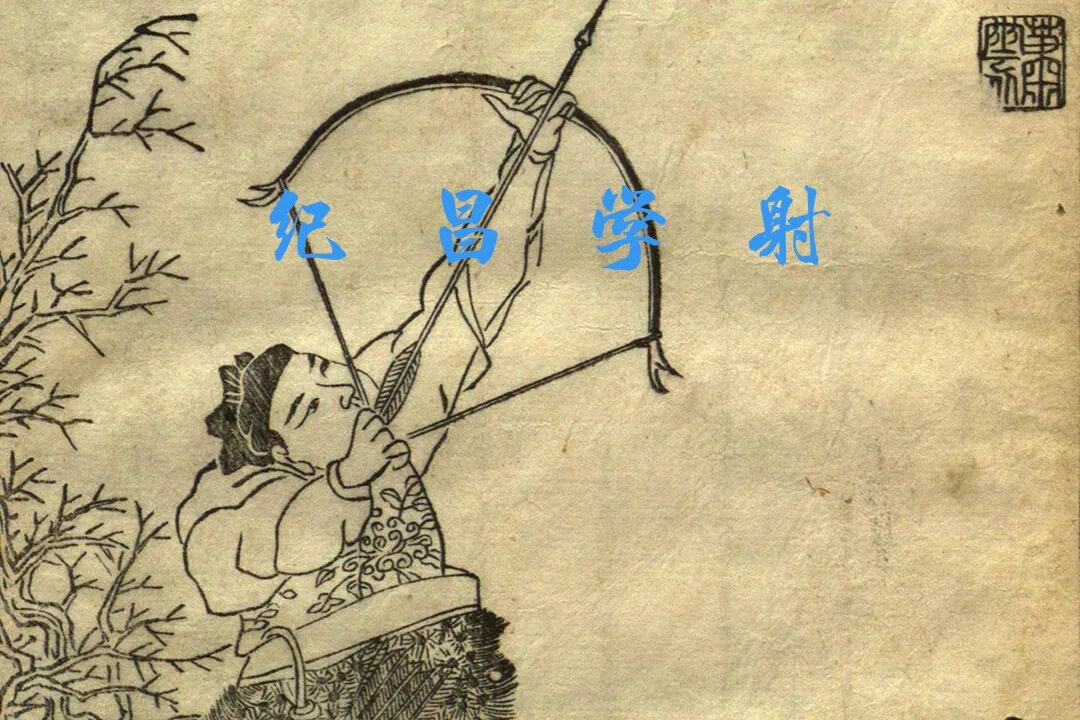 纪昌学射